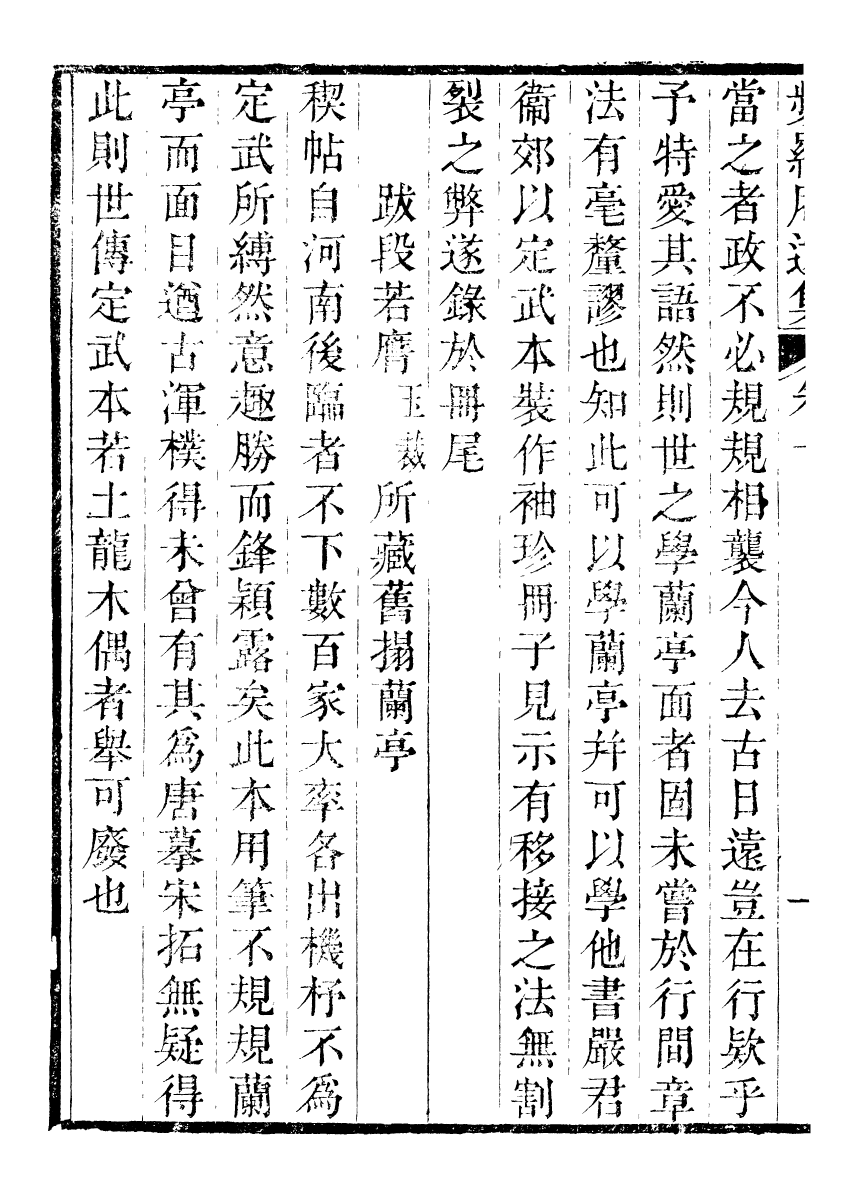 當之者政不必規規相襲今人去古日遠豈在行欵乎
予特愛其語然則世之學蘭亭面者固未嘗於行間章
法有毫釐謬也知此可以學蘭亭幷可以學他書嚴君
衞郊以定武本裝作袖珍冊子見示有移接之法無割
裂之弊遂錄於冊尾
跋段若膺玉裁所藏舊搨蘭亭
稧帖自河南後臨者不下數百家大率各出機杼不爲
定武所縛然意趣勝而鋒穎露矣此本用筆不規規蘭
亭而面目遒古渾樸得未曾有其爲唐摹宋拓無疑得
此則世傳定武本若土龍木偶者舉可廢也